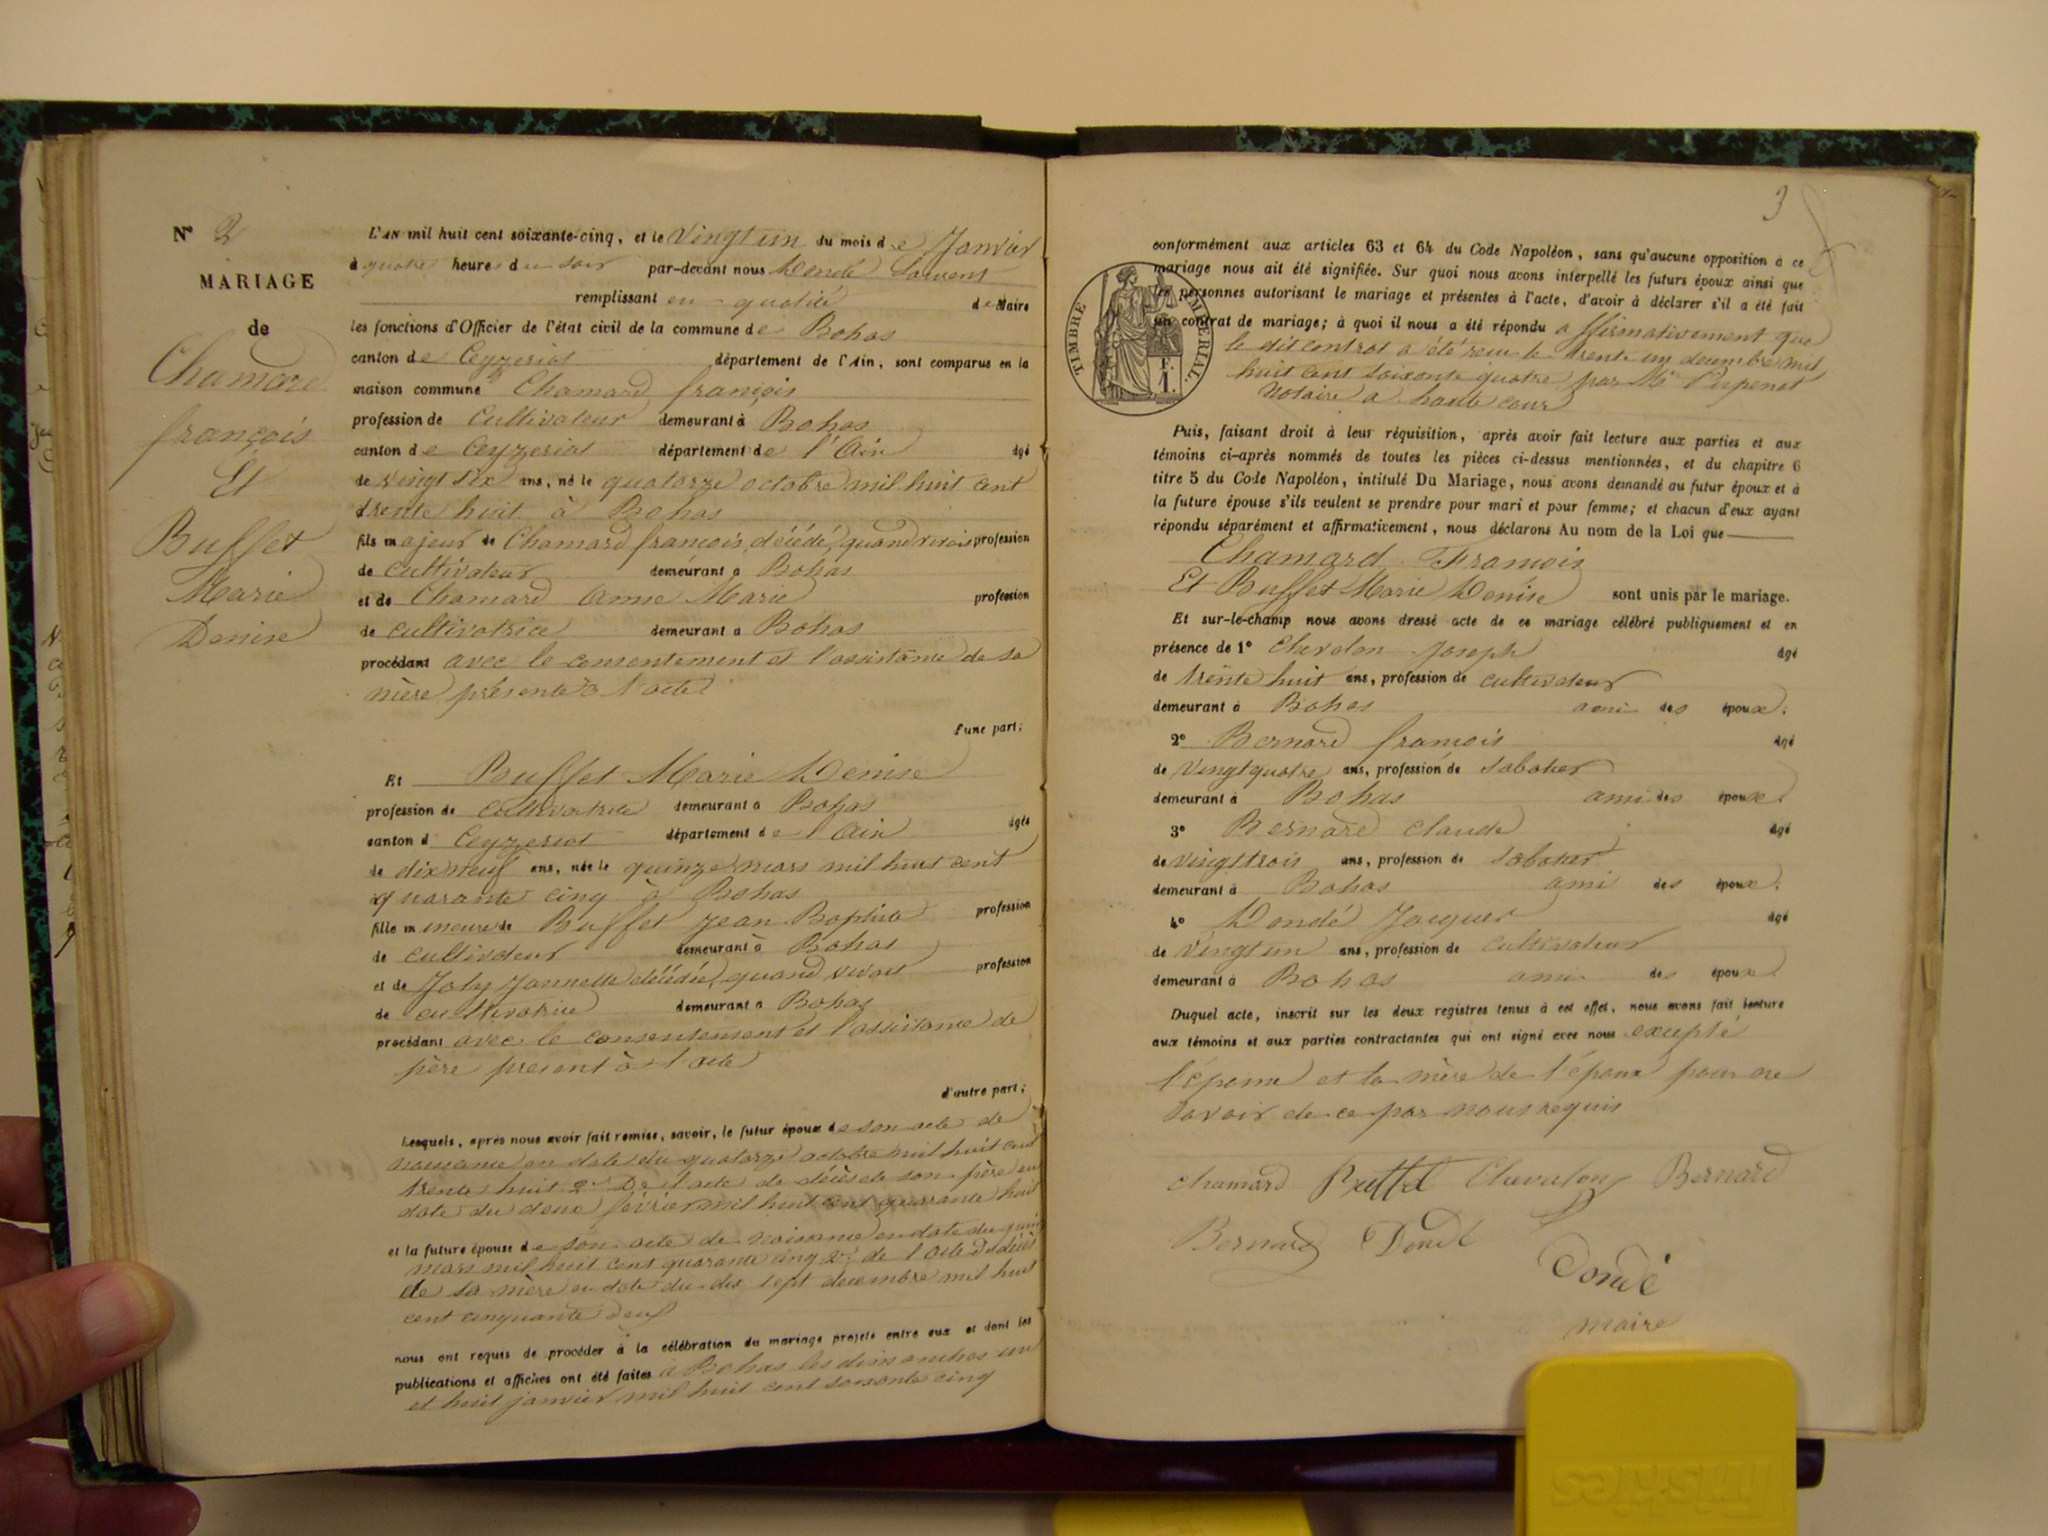 N° 2
MARIAGE
de
Chamard
françois
Et
Buffet
Marie
Denise
L'AN mil huit cent soixante-cinq, et le Vingt un du mois de Janvier
à quatre heures du soir par-devant nous Dondé Laurent
remplissant en qualité de Maire
les fonctions d'Officier de l'état civil de la commune de Bohas
canton de Ceyzeriat département de l'Ain, sont comparus en la
maison commune Chamard françois
profession de Cultivateur demeurant à Bohas
canton de Ceyzeriat département de l'Ain âgé
de vingt six ans, né le quatorze octobre mil huit cent
trente huit à Bohas
fils majeur de Chamard françois, décédé, quand vivais profession
de cultivateur demeurant à Bohas
et de Chamard Anne Marie profession
de cultivatrice demeurant à Bohas
procédant avec le consentement et l'assistance de sa
mère présente à l'acte
d'une part;
Et Buffet Marie Denise
profession de cultivatrice demeurant à Bohas
canton d Ceyzeriat département de l'Ain âgée
de dix neuf ans, née le quinze mars mil huit cent
quarante cinq à Bohas
fille mineure de Buffet Jean Baptiste profession
de cultivateur demeurant à Bohas
et de Joly Jannette décédée, quand vivait profession
de cultivatrice demeurant à Bohas
procédant avec le consentement et l'assistance de
père present à l'acte
d'autre part;
Lesquels, après nous avoir fait remise, savoir, le futur époux de son acte de
naissance en date du quatorze octobre mil huit cent
trente huit 2° De l'acte de décès de son père en
date du deux février mil huit cent quarante huit
et la future épouse de son acte de naissance en date du quinze
mars mil huit cent quarante cinq 2° de l'acte de décès
de sa mère en date du dix sept decembre mil huit
cent cinquante deux
nous ont requis de procéder à la célébration du mariage projeté entre eux et dont les
publications et affiches ont été faites à Bohas les dimanches un
et huit janvier mil huit cent soixante cinq
3
conformément aux articles 63 et 64 du Code Napoléon, sans qu'aucune opposition à ce
mariage nous ait été signifiée. Sur quoi nous avons interpellé les futurs époux ainsi que
les personnes autorisant le mariage et présentes à l'acte, d'avoir à déclarer s'il a été fait
un contrat de mariage; à quoi il nous a été répondu affirmativement que
le dit contrat a été reçu le trente un decembre mil
huit cent soixante quatre par Me
notaire a haute cour
TIMBRE IMPERIAL.
F.
1.
Puis, faisant droit à leur réquisition, après avoir fait lecture aux parties et aux
témoins ci-après nommés de toutes les pièces ci-dessus mentionnées, et du chapitre 6
titre 5 du Code Napoléon, intitulé Du Mariage, nous avons demandé au futur époux et à
la future épouse s'ils veulent se prendre pour mari et pour femme; et chacun d'eux ayant
répondu séparément et affirmativement, nous déclarons Au nom de la Loi que
Chamard François
Et Buffet Marie Denise sont unis par le mariage.
Et sur-le-champ nous avons dressé acte de ce mariage célébré publiquement et en
présence de 1° Chevalon Joseph âgé
de trente huit ans, profession de cultivateur
demeurant à Bohas ami des époux.
2° Bernard françois âgé
de Vingt quatre ans, profession de sabotier
demeurant à Bohas ami des époux.
3° Bernard Claude âgé
de vingt trois ans, profession de sabotier
demeurant à Bohas ami des époux.
4° Dondé Jacques âgé
de vingt un ans, profession de cultivateur
demeurant à Bohas ami des époux
Duquel acte, inscrit sur les deux registres tenus à cet effet, nous avons fait lecture
aux témoins et aux parties contractantes qui ont signé avec nous excepté
l'épouse et la mère de l'époux pour ne
savoir de ce par nous requis
Chamard Buffet Chevalon Bernard
Bernard Dondé
Dondé
maire